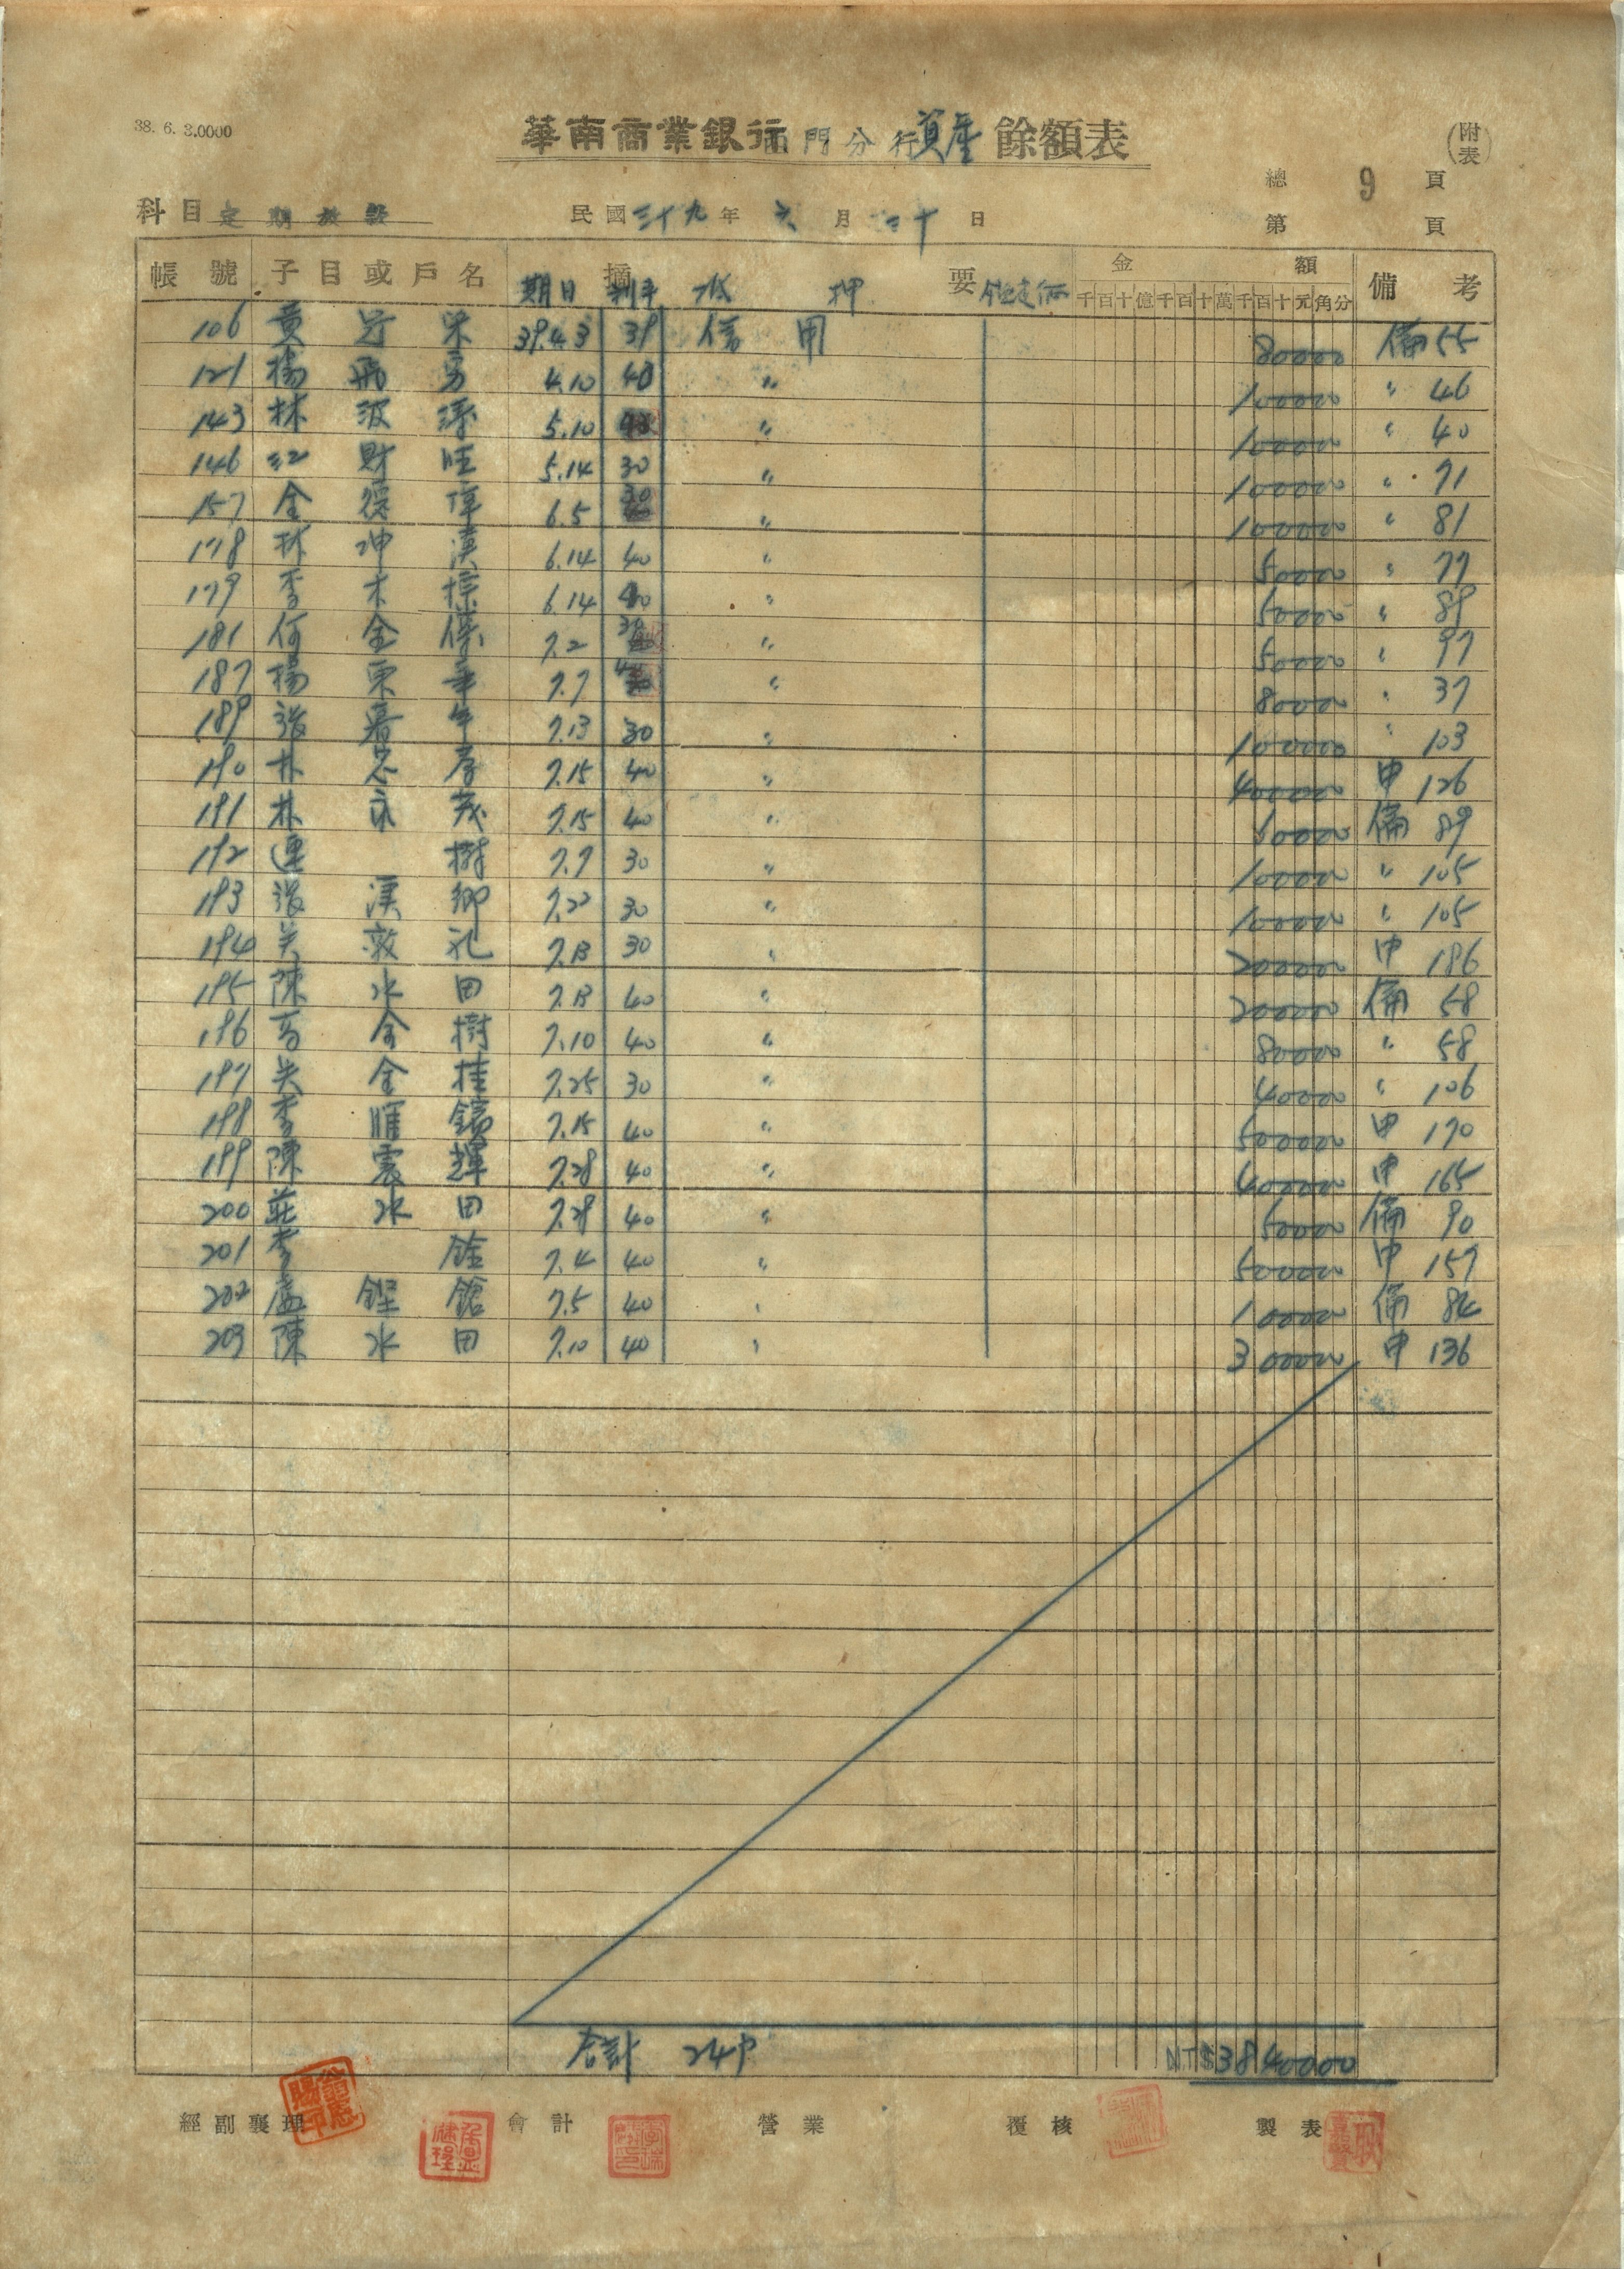 38. 6. 3.0000
華南商業銀行西門分行資產餘額表
(附表)
總 9 頁
科目 定期放款 民國三十九年六月三十日 第 頁
帳號 子目或戶名 摘要 金額 備考
期日 利率 抵押 鑑定価 千百十億千百十萬千百十元角分
106 黃 榮 39.4.3 39 信用 80000 備 55
121 楊飛勇 4.10 40 〃 100000 〃 46
143 林波 5.10 〃 100000 〃 40
146 江財旺 5.14 30 〃 100000 〃 71
157 金德偉 6.5 30 〃 100000 〃 81
178 林坤漢 6.14 40 〃 50000 〃 77
179 李木 6.14 40 〃 50000 〃 89
181 何金保 7.2 〃 50000 〃 97
187 楊東華 7.7 〃 80000 〃 37
189 張 年 7.13 30 〃 100000 〃 103
190 林 7.15 40 〃 400000 申 126
191 林永茂 7.15 40 〃 備 89
192 連樹 7.7 30 〃 100000 〃 105
193 張漢卿 7.22 30 〃 100000 〃 105
194 吳敦礼 7.13 30 〃 200000 申 186
195 陳水田 7.13 40 〃 200000 備 58
196 高金樹 7.10 40 〃 80000 〃 58
197 吳金桂 7.25 30 〃 40000 〃 106
198 李 7.15 40 〃 500000 申 170
199 陳震輝 7.28 40 〃 400000 申 165
200 莊水田 7.28 40 〃 50000 備 90
201 李 7.4 40 〃 500000 申 157
202 盧 7.5 40 〃 100000 備 84
203 陳水田 7.10 40 〃 300000 申 136
合計 24戶 NT$3840000
經副襄理 會計 營業 覆核 製表